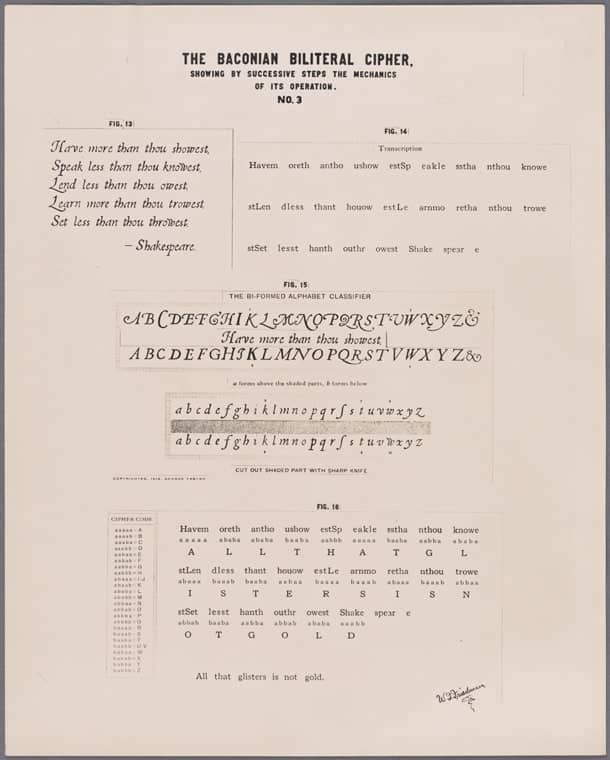 THE BACONIAN BILITERAL CIPHER,
SHOWING BY SUCCESSIVE STEPS THE MECHANICS
OF ITS OPERATION.
NO. 3
FIG. 13
Have more than thou showest,
Speak less than thou knowest,
Lend less than thou owest,
Learn more than thou trowest,
Set less than thou throwest.
— Shakespeare.
FIG. 14
Transcription
Havem oreth antho ushow estSp eakle sstha nthou knowe
stLen dless thant houow estLe arnmo retha nthou trowe
stSet lesst hanth outhr owest Shake spear e
FIG. 15
THE BI-FORMED ALPHABET CLASSIFIER
A B C D E F G H I K L M N O P Q R S T U W X Y Z &
Have more than thou showest,
A B C D E F G H I K L M N O P Q R S T V W X Y Z &
a forms above the shaded parts, b forms below
a b c d e f g h i k l m n o p q r ſ s t u v w x y z
a b c d e f g h i k l m n o p q r ſ s t u v w x y z
CUT OUT SHADED PART WITH SHARP KNIFE
COPYRIGHTED, 1916, GEORGE FABYAN
FIG. 16
CIPHER CODE
aaaaa=A
aaaab=B
aaaba=C
aaabb=D
aabaa=E
aabab=F
aabba=G
aabbb=H
abaaa=I J
abaab=K
ababa=L
ababb=M
abbaa=N
abbab=O
abbba=P
abbbb=Q
baaaa=R
baaab=S
baaba=T
baabb=U V
babaa=W
babab=X
babba=Y
babbb=Z
Havem oreth antho ushow estSp eakle sstha nthou knowe
aaaaa ababa ababa baaba aabbb aaaaa baaba aabba ababa
A L L T H A T G L
stLen dless thant houow estLe arnmo retha nthou trowe
abaaa baaab baaba aabaa baaaa baaab abaaa baaab abbaa
I S T E R S I S N
stSet lesst hanth outhr owest Shake spear e
abbab baaba aabba abbab ababa aaabb
O T G O L D
All that glisters is not gold.
W. F. Friedman